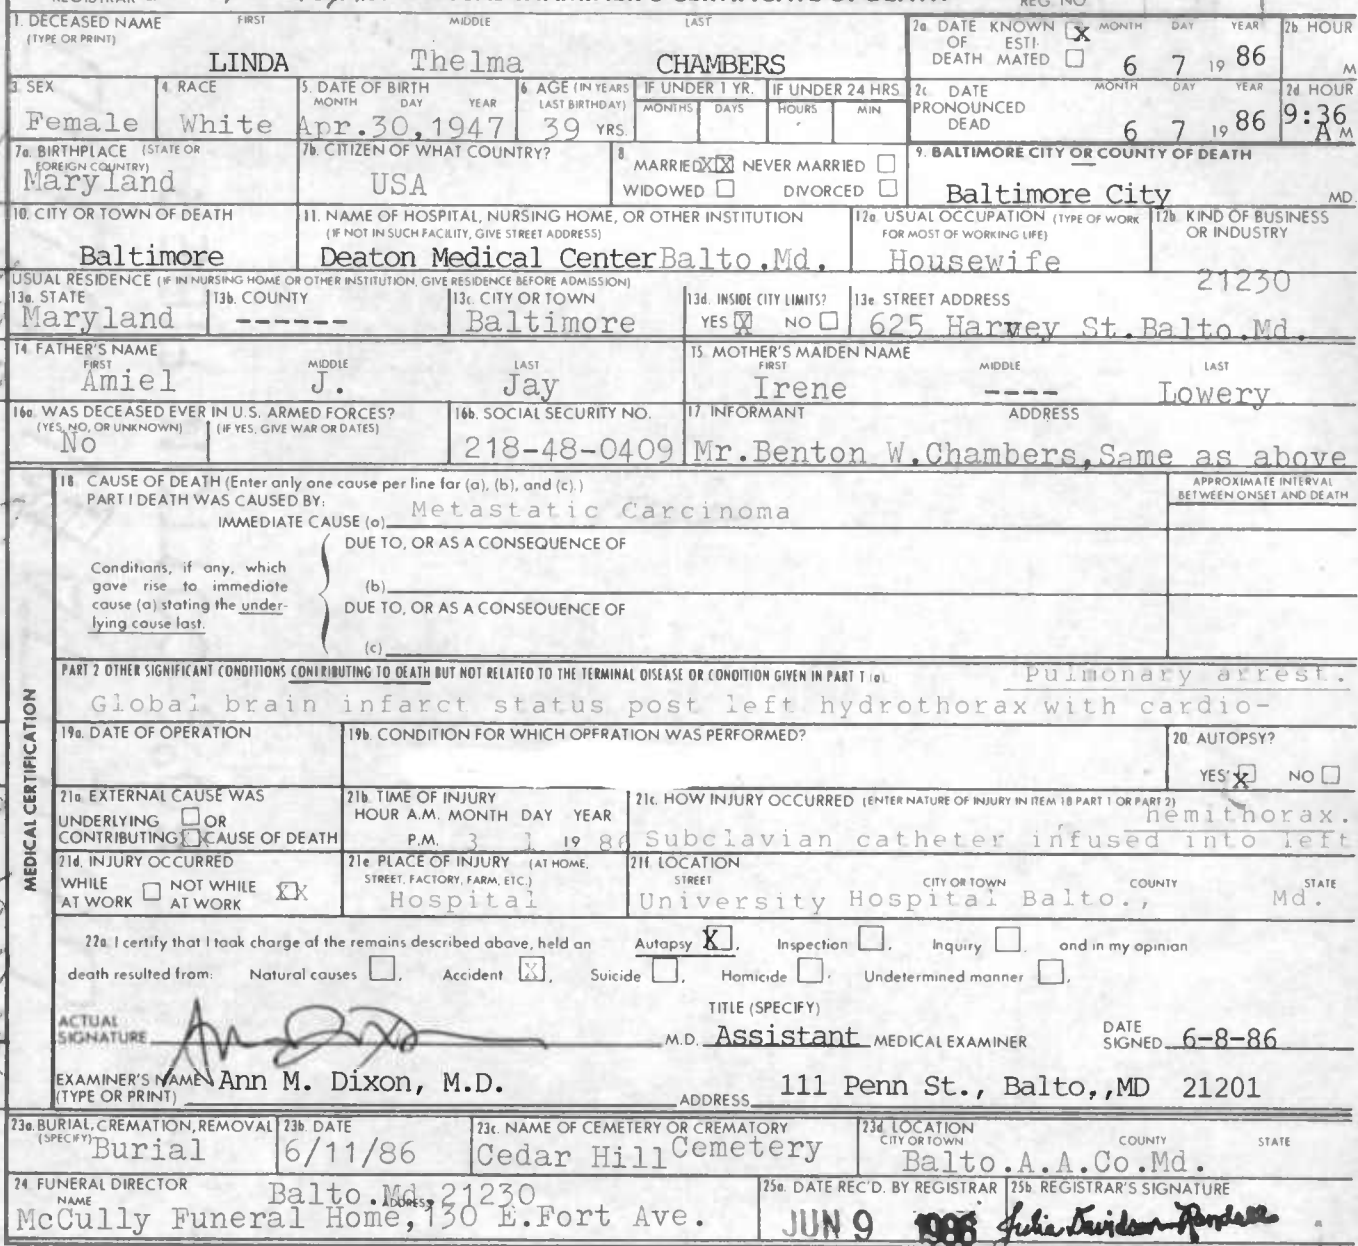 1. DECEASED NAME FIRST MIDDLE LAST
(TYPE OR PRINT)
LINDA Thelma CHAMBERS
2a DATE KNOWN X MONTH DAY YEAR
OF ESTI-
DEATH MATED 6 7 19 86
2b HOUR
M
3 SEX
Female
4. RACE
White
5. DATE OF BIRTH
MONTH DAY YEAR
Apr.30,1947
6 AGE (IN YEARS
LAST BIRTHDAY)
39 YRS.
IF UNDER 1 YR.
MONTHS DAYS
IF UNDER 24 HRS
HOURS MIN
2c DATE MONTH DAY YEAR
PRONOUNCED
DEAD 6 7 19 86
2d HOUR
9:36
A M
7a. BIRTHPLACE (STATE OR
FOREIGN COUNTRY)
Maryland
7b. CITIZEN OF WHAT COUNTRY?
USA
8
MARRIED XX NEVER MARRIED
WIDOWED DIVORCED
9. BALTIMORE CITY OR COUNTY OF DEATH
Baltimore City MD.
10. CITY OR TOWN OF DEATH
Baltimore
11. NAME OF HOSPITAL, NURSING HOME, OR OTHER INSTITUTION
(IF NOT IN SUCH FACILITY, GIVE STREET ADDRESS)
Deaton Medical Center Balto.Md.
12a. USUAL OCCUPATION (TYPE OF WORK
FOR MOST OF WORKING LIFE)
Housewife
12b. KIND OF BUSINESS
OR INDUSTRY
USUAL RESIDENCE (IF IN NURSING HOME OR OTHER INSTITUTION, GIVE RESIDENCE BEFORE ADMISSION)
13a. STATE
Maryland
13b. COUNTY
------
13c. CITY OR TOWN
Baltimore
13d. INSIDE CITY LIMITS?
YES X NO
13e STREET ADDRESS 21230
625 Harvey St.Balto.Md.
14 FATHER'S NAME
FIRST MIDDLE LAST
Amiel J. Jay
15 MOTHER'S MAIDEN NAME
FIRST MIDDLE LAST
Irene ---- Lowery
16a. WAS DECEASED EVER IN U.S. ARMED FORCES?
(YES, NO, OR UNKNOWN) (IF YES, GIVE WAR OR DATES)
No
16b. SOCIAL SECURITY NO.
218-48-0409
17 INFORMANT ADDRESS
Mr.Benton W.Chambers,Same as above
MEDICAL CERTIFICATION
18 CAUSE OF DEATH (Enter only one cause per line for (a), (b), and (c).)
PART I DEATH WAS CAUSED BY:
IMMEDIATE CAUSE (a) Metastatic Carcinoma
APPROXIMATE INTERVAL
BETWEEN ONSET AND DEATH
DUE TO, OR AS A CONSEQUENCE OF
Conditions, if any, which
gave rise to immediate
cause (a) stating the under-
lying cause last.
(b)
DUE TO, OR AS A CONSEQUENCE OF
(c)
PART 2 OTHER SIGNIFICANT CONDITIONS CONTRIBUTING TO DEATH BUT NOT RELATED TO THE TERMINAL DISEASE OR CONDITION GIVEN IN PART 1 (a) Pulmonary arrest.
Global brain infarct status post left hydrothorax with cardio-
19a. DATE OF OPERATION
19b. CONDITION FOR WHICH OPERATION WAS PERFORMED?
20 AUTOPSY?
YES X NO
21a EXTERNAL CAUSE WAS
UNDERLYING OR
CONTRIBUTING X CAUSE OF DEATH
21b. TIME OF INJURY
HOUR A.M. MONTH DAY YEAR
P.M. 3 1 19 86
21c. HOW INJURY OCCURRED (ENTER NATURE OF INJURY IN ITEM 18 PART 1 OR PART 2)
hemithorax.
Subclavian catheter infused into left
21d. INJURY OCCURRED
WHILE NOT WHILE XX
AT WORK AT WORK
21e PLACE OF INJURY (AT HOME,
STREET, FACTORY, FARM, ETC.)
Hospital
21f. LOCATION
STREET CITY OR TOWN COUNTY STATE
University Hospital Balto., Md.
22a I certify that I took charge of the remains described above, held an Autopsy X, Inspection , Inquiry . and in my opinion
death resulted from: Natural causes , Accident X, Suicide , Homicide . Undetermined manner ,
ACTUAL
SIGNATURE
TITLE (SPECIFY)
M.D. Assistant MEDICAL EXAMINER
DATE
SIGNED 6-8-86
EXAMINER'S NAME Ann M. Dixon, M.D.
(TYPE OR PRINT)
ADDRESS 111 Penn St., Balto,,MD 21201
23a. BURIAL, CREMATION, REMOVAL
(SPECIFY) Burial
23b. DATE
6/11/86
23c. NAME OF CEMETERY OR CREMATORY
Cedar Hill Cemetery
23d LOCATION
CITY OR TOWN COUNTY STATE
Balto.A.A.Co.Md.
24 FUNERAL DIRECTOR
NAME ADDRESS
Balto.Md.21230
McCully Funeral Home,130 E.Fort Ave.
25a. DATE REC'D. BY REGISTRAR
JUN 9 1986
25b. REGISTRAR'S SIGNATURE
Julia Davidson-Randall